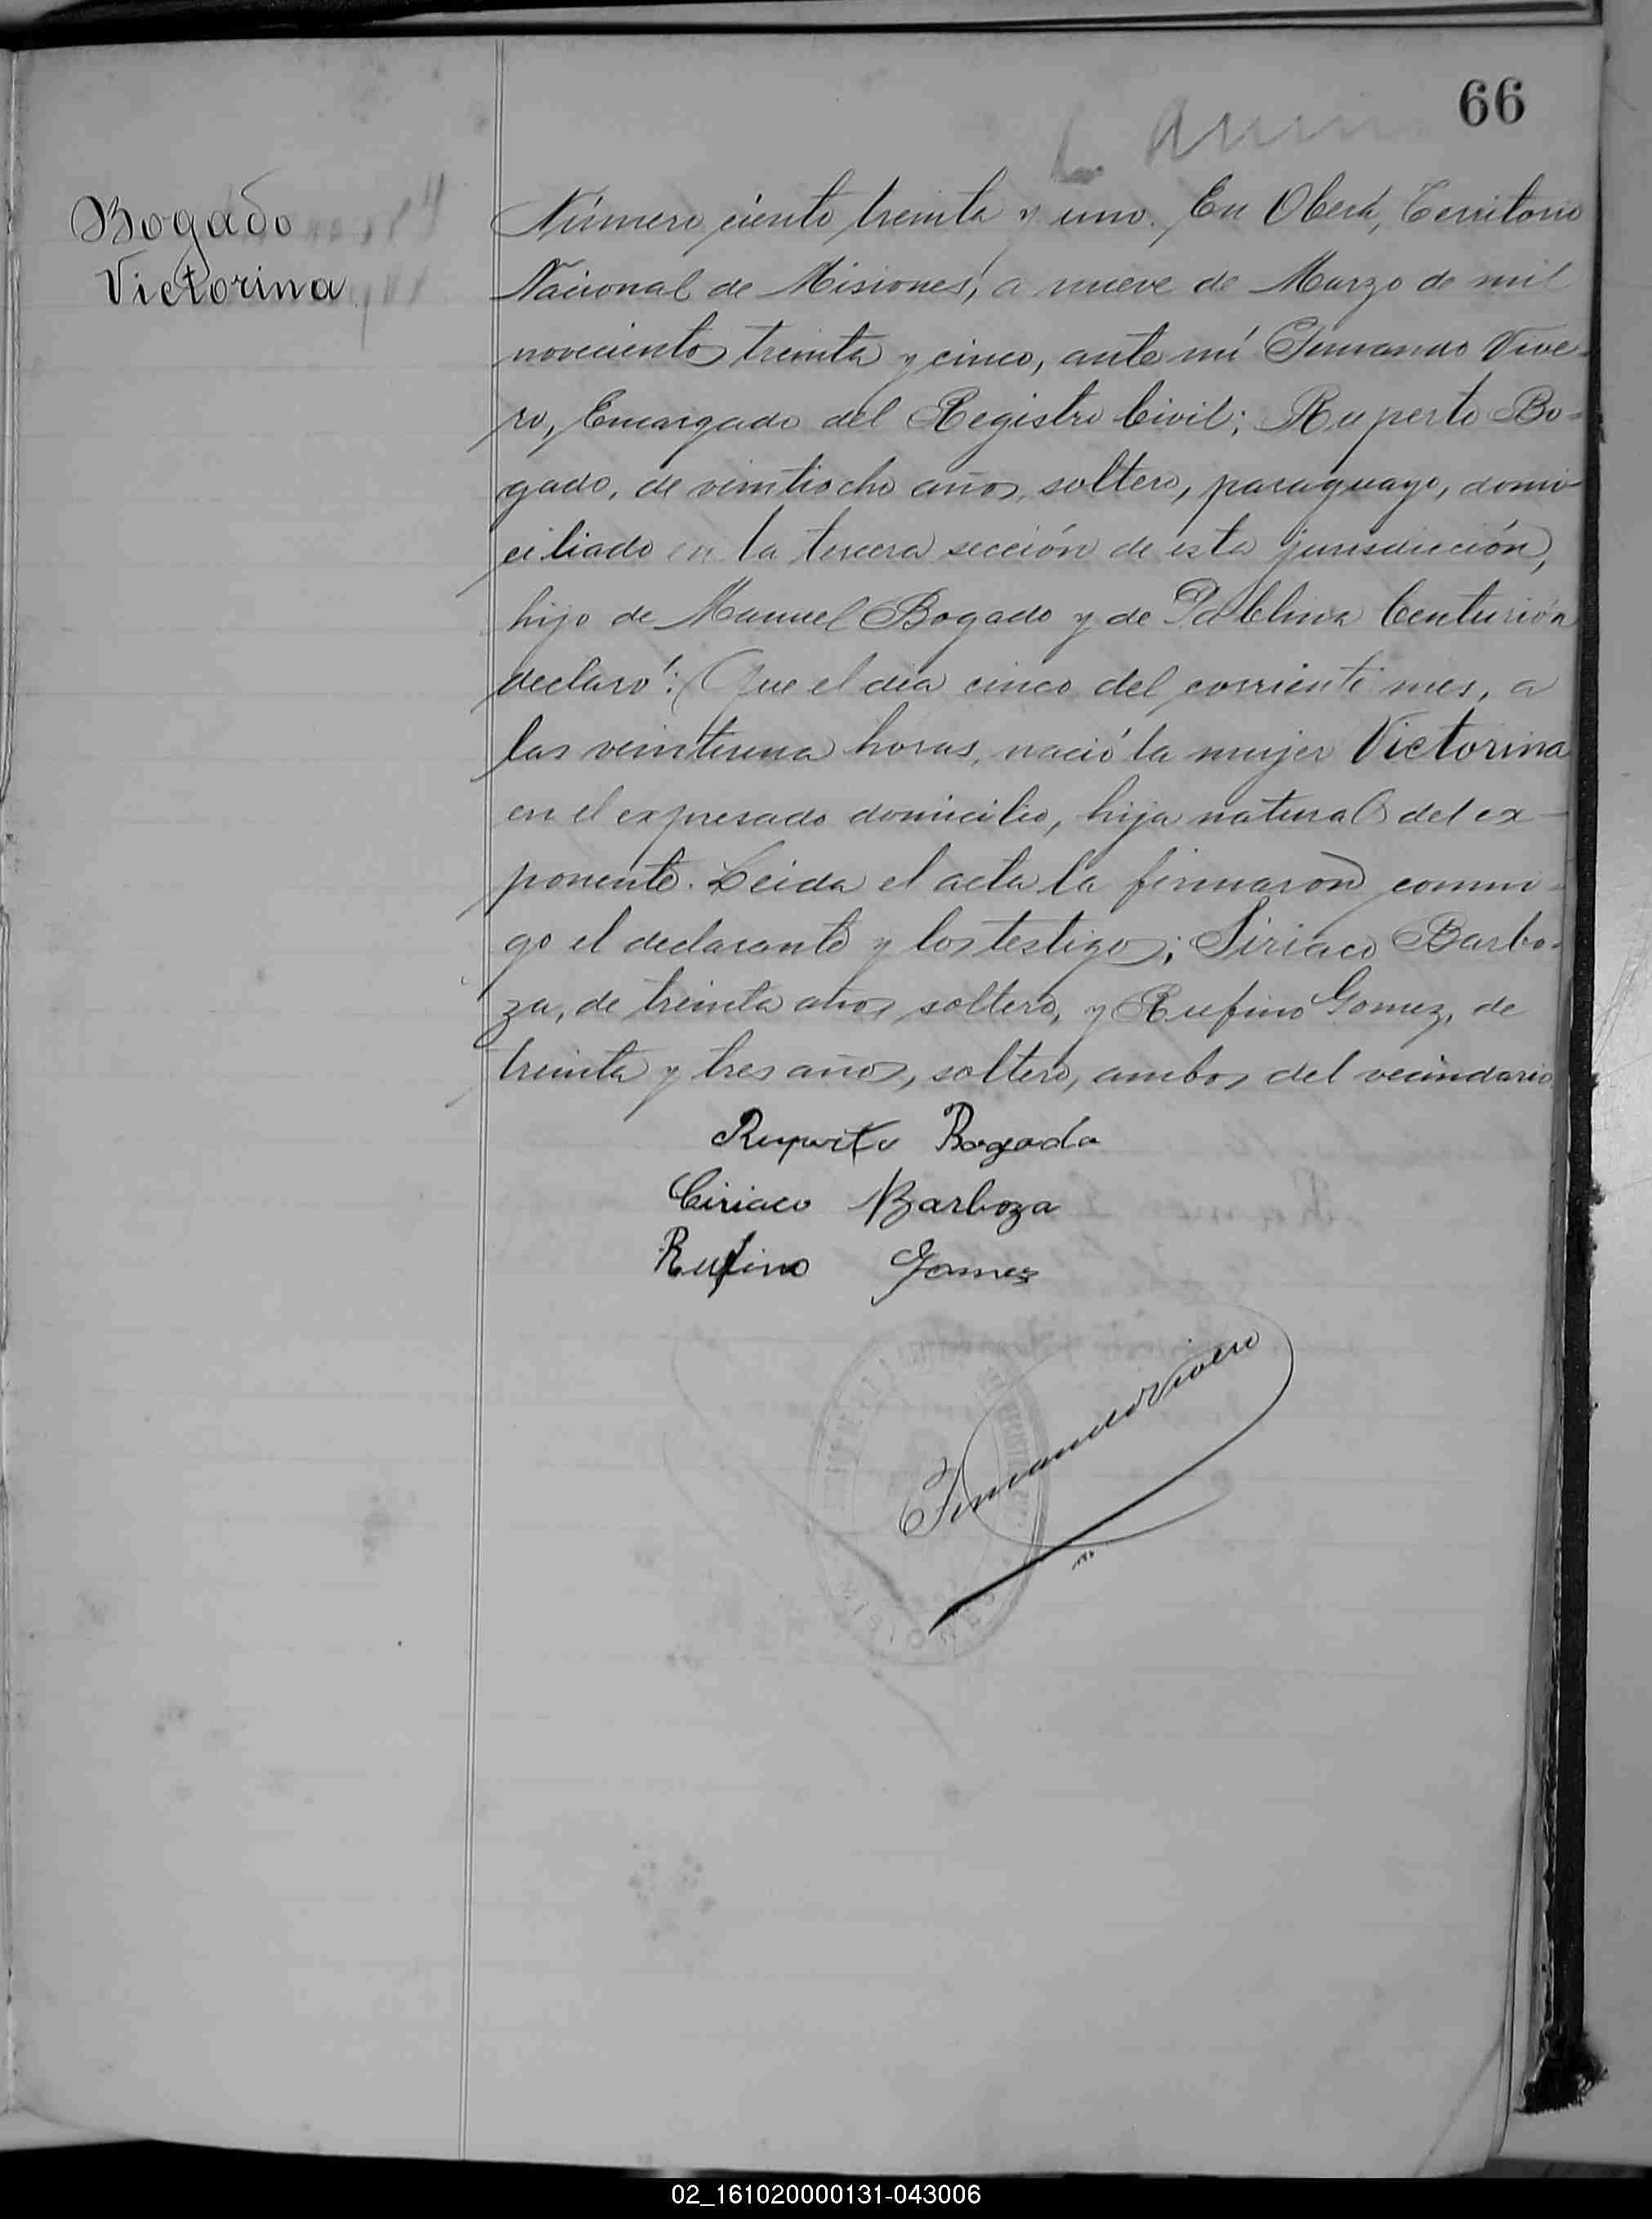 66
Bogado
Victorina
Número ciento treinta y uno. En Oberá, Territorio
Nacional de Misiones, a nueve de Marzo de mil
novecientos treinta y cinco, ante mí Fernando Vive-
ro, Encargado del Registro Civil; Ruperto Bo-
gado, de veintiocho años, soltero, paraguayo, domi-
ciliado en la tercera sección de esta jurisdicción,
hijo de Manuel Bogado y de Pablina Centurión
declaró: Que el día cinco del corriente mes, a
las veintiuna horas, nació la mujer Victorina
en el expresado domicilio, hija natural del ex-
ponente. Leida el acta la firmaron conmi-
go el declarante y los testigos; Siriaco Barbo-
za, de treinta años soltero, y Rufino Gomez, de
treinta y tres años, soltero, ambos del vecindario
Ruperto Bogado
Ciriaco Barboza
Rufino Gomez
Fernando Vivero
02_161020000131-043006